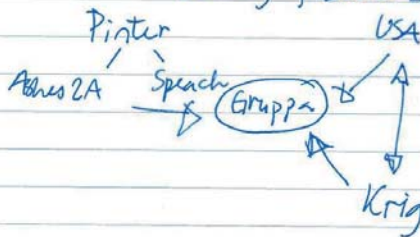 Pinter
USA
Ashes 2A
Speach
Gruppa
Krig